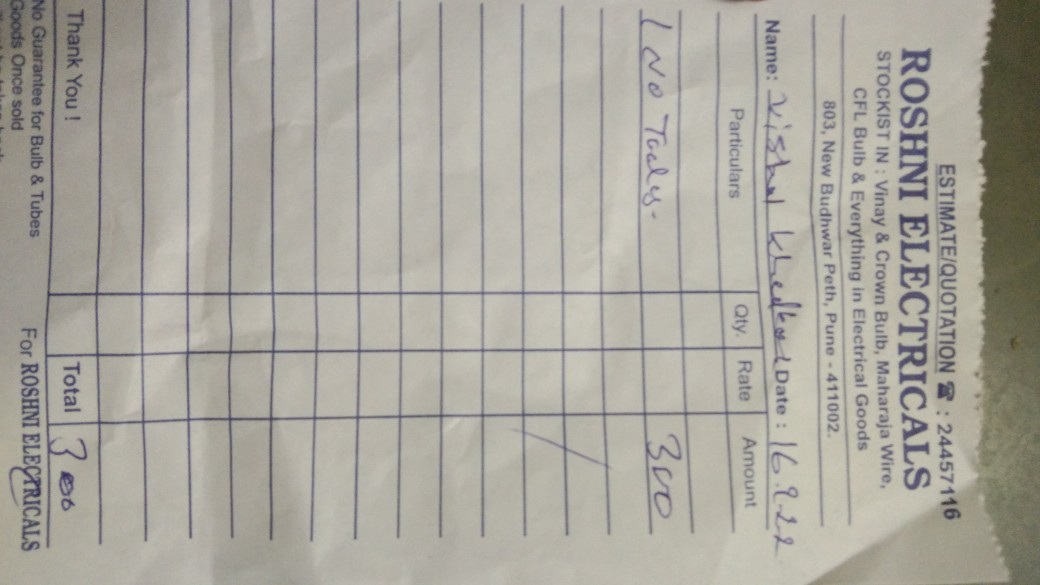 ESTIMATE/QUOTATION ☎ : 24457116
ROSHNI ELECTRICALS
STOCKIST IN : Vinay & Crown Bulb, Maharaja Wire,
CFL Bulb & Everything in Electrical Goods
803, New Budhwar Peth, Pune - 411002.
Name: Vishal Khedkar Date : 16.9.22
Particulars Qty. Rate Amount
1 No 300
Thank You ! Total 300
No Guarantee for Bulb & Tubes For ROSHNI ELECTRICALS
Goods Once sold